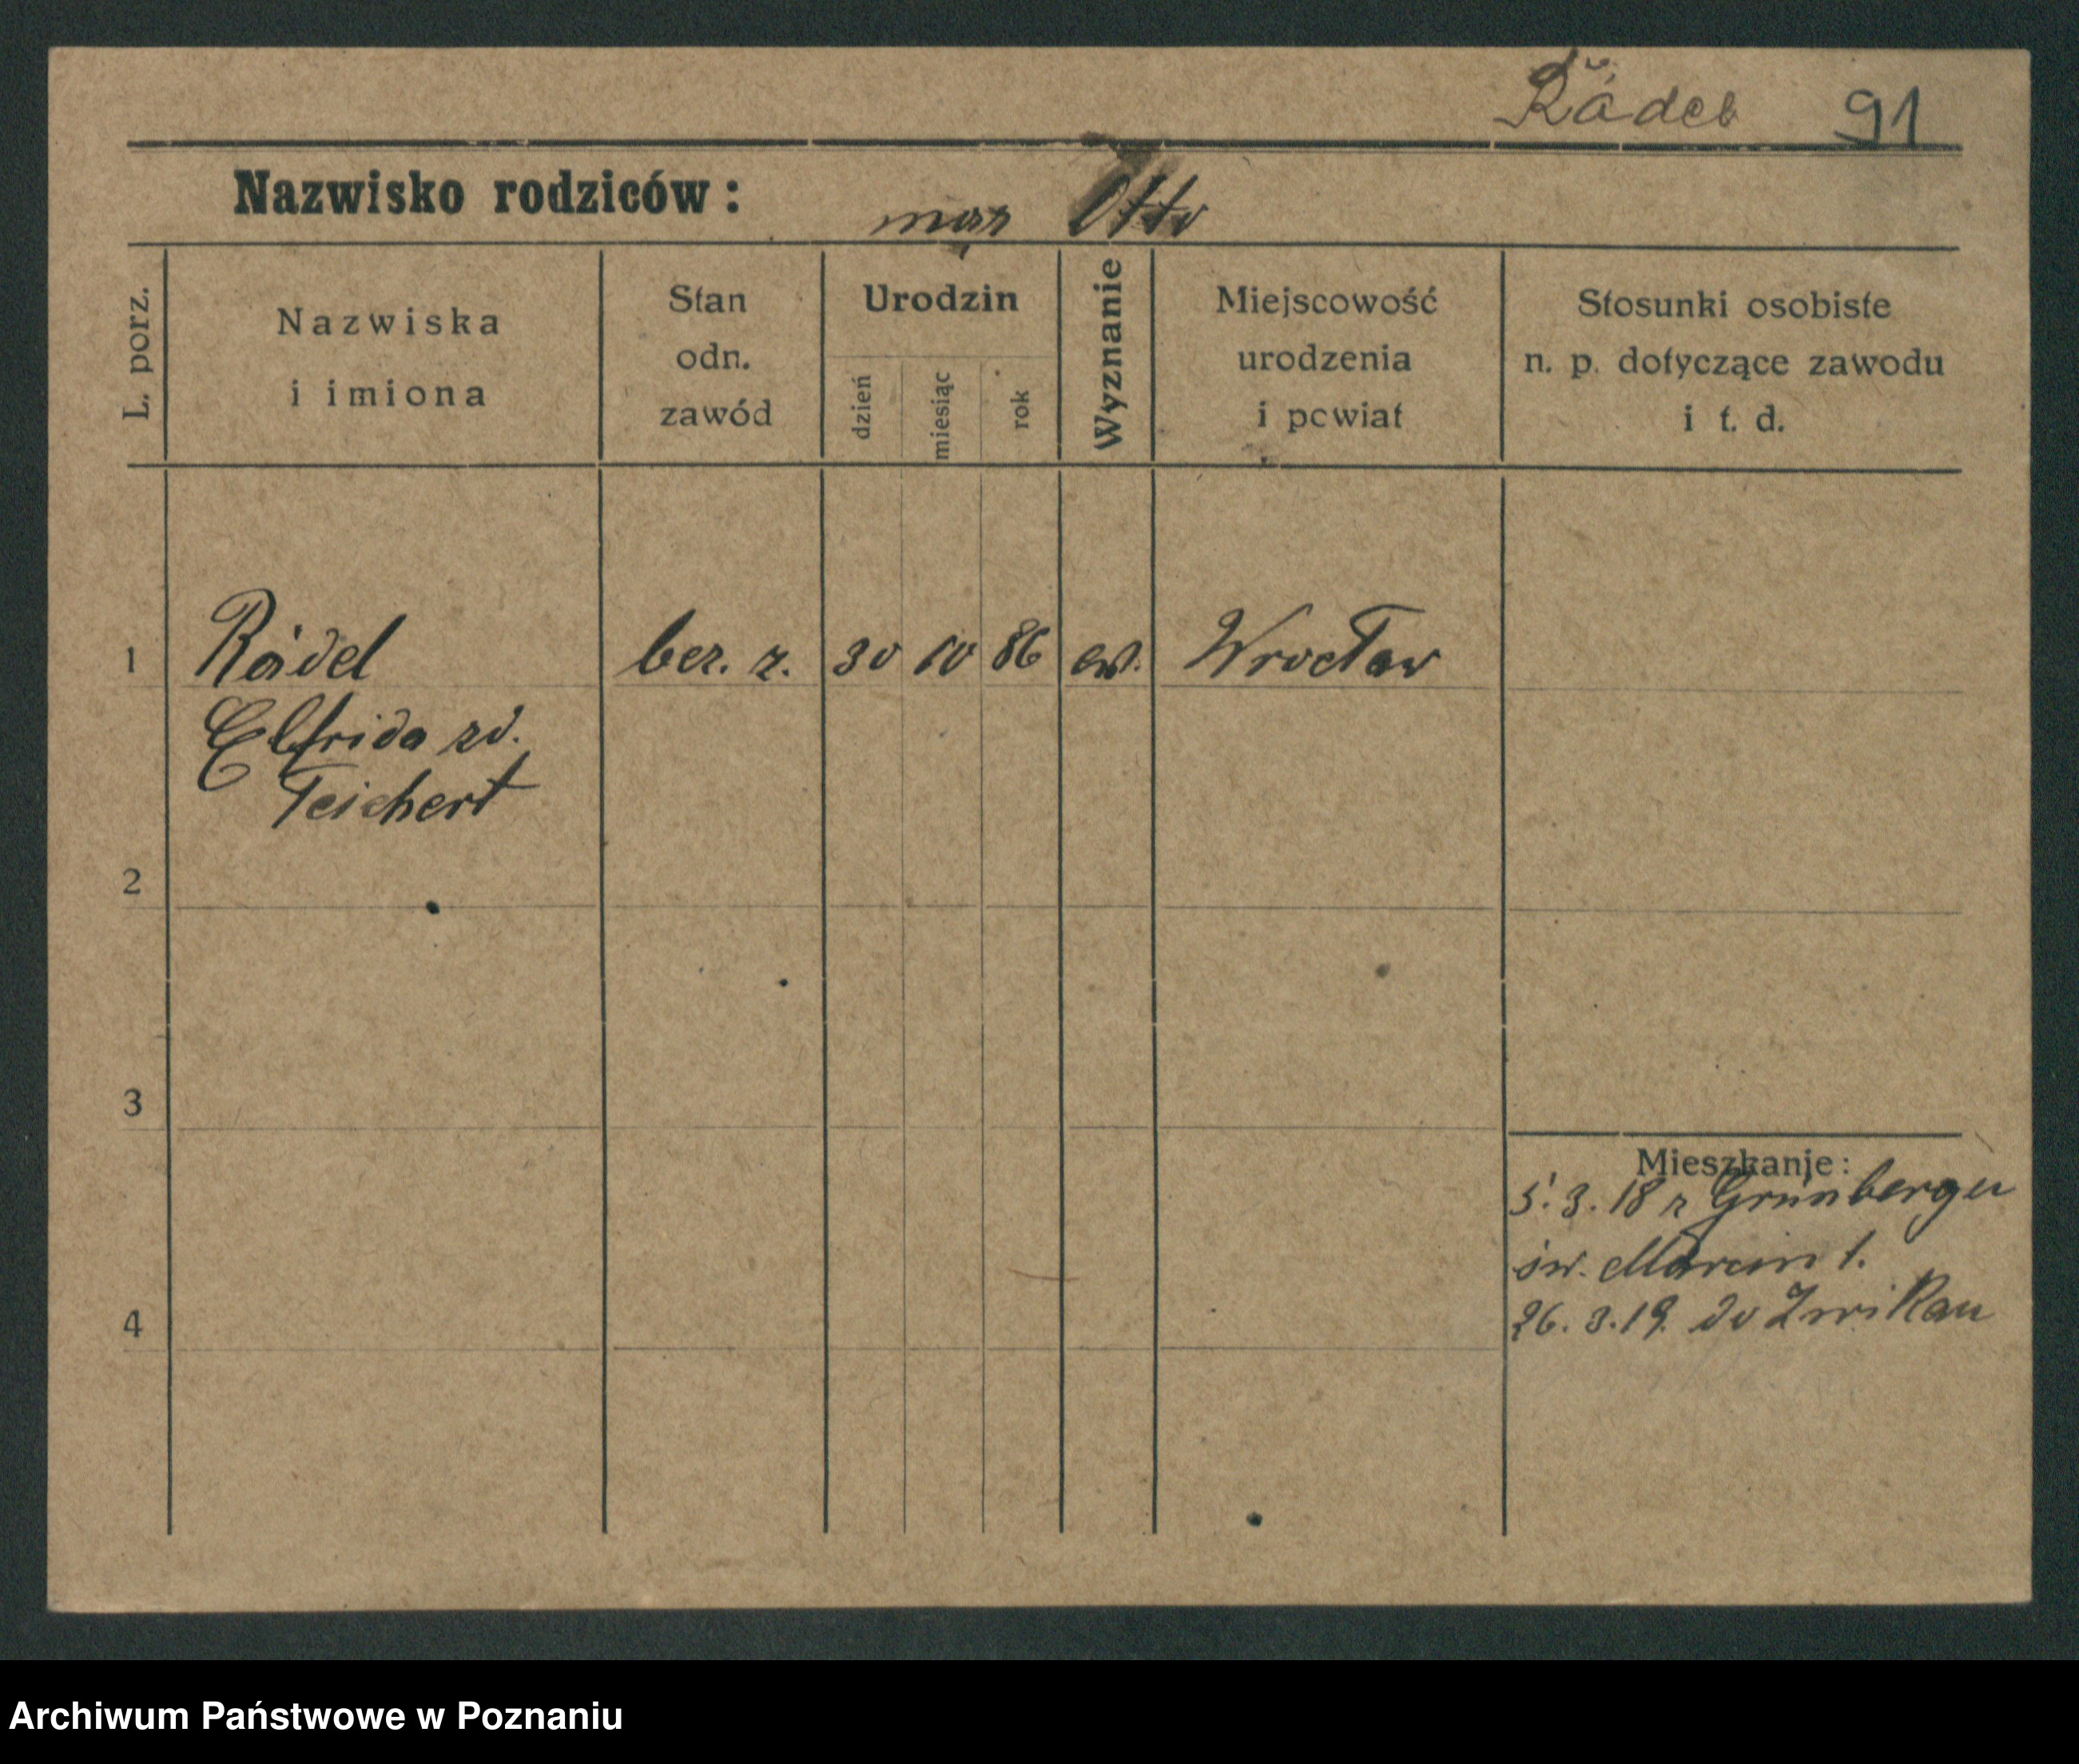 Rädel 91
Nazwisko rodziców: mąż Otto
L. porz.
Nazwiska
i imiona
Stan
odn.
zawód
Urodzin
dzień
miesiąc
rok
Wyznanie
Miejscowość
urodzenia
i powiat
Stosunki osobiste
n. p. dotyczące zawodu
i t. d.
1 Rädel bez. z. 30 10 86 ew. Wrocław
Elfrida
Teichert
2
3
Mieszkanie:
5. 3. 18 z Grünbergu
św. Marcin 1.
4
26. 3. 19. do Zwikau
Archiwum Państwowe w Poznaniu